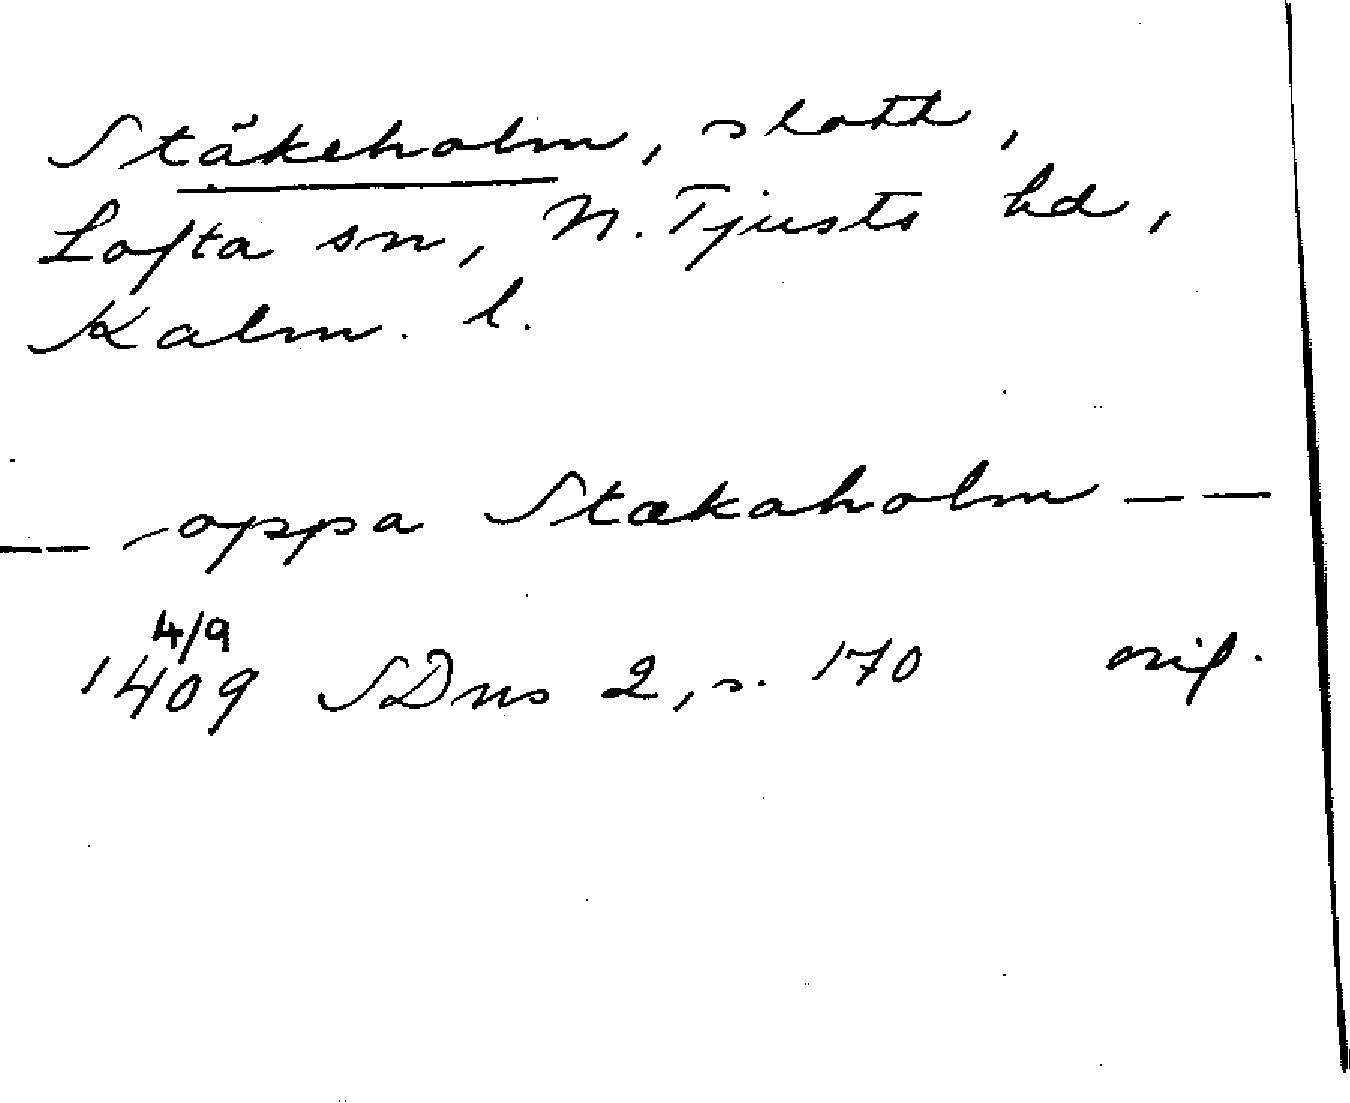 Stäkeholm, slott,
Lofta sn, N. Tjusts hd,
Kalm. l.
-- oppa Stækaholm --
4/9
1409 SDns 2, s. 170 orig.